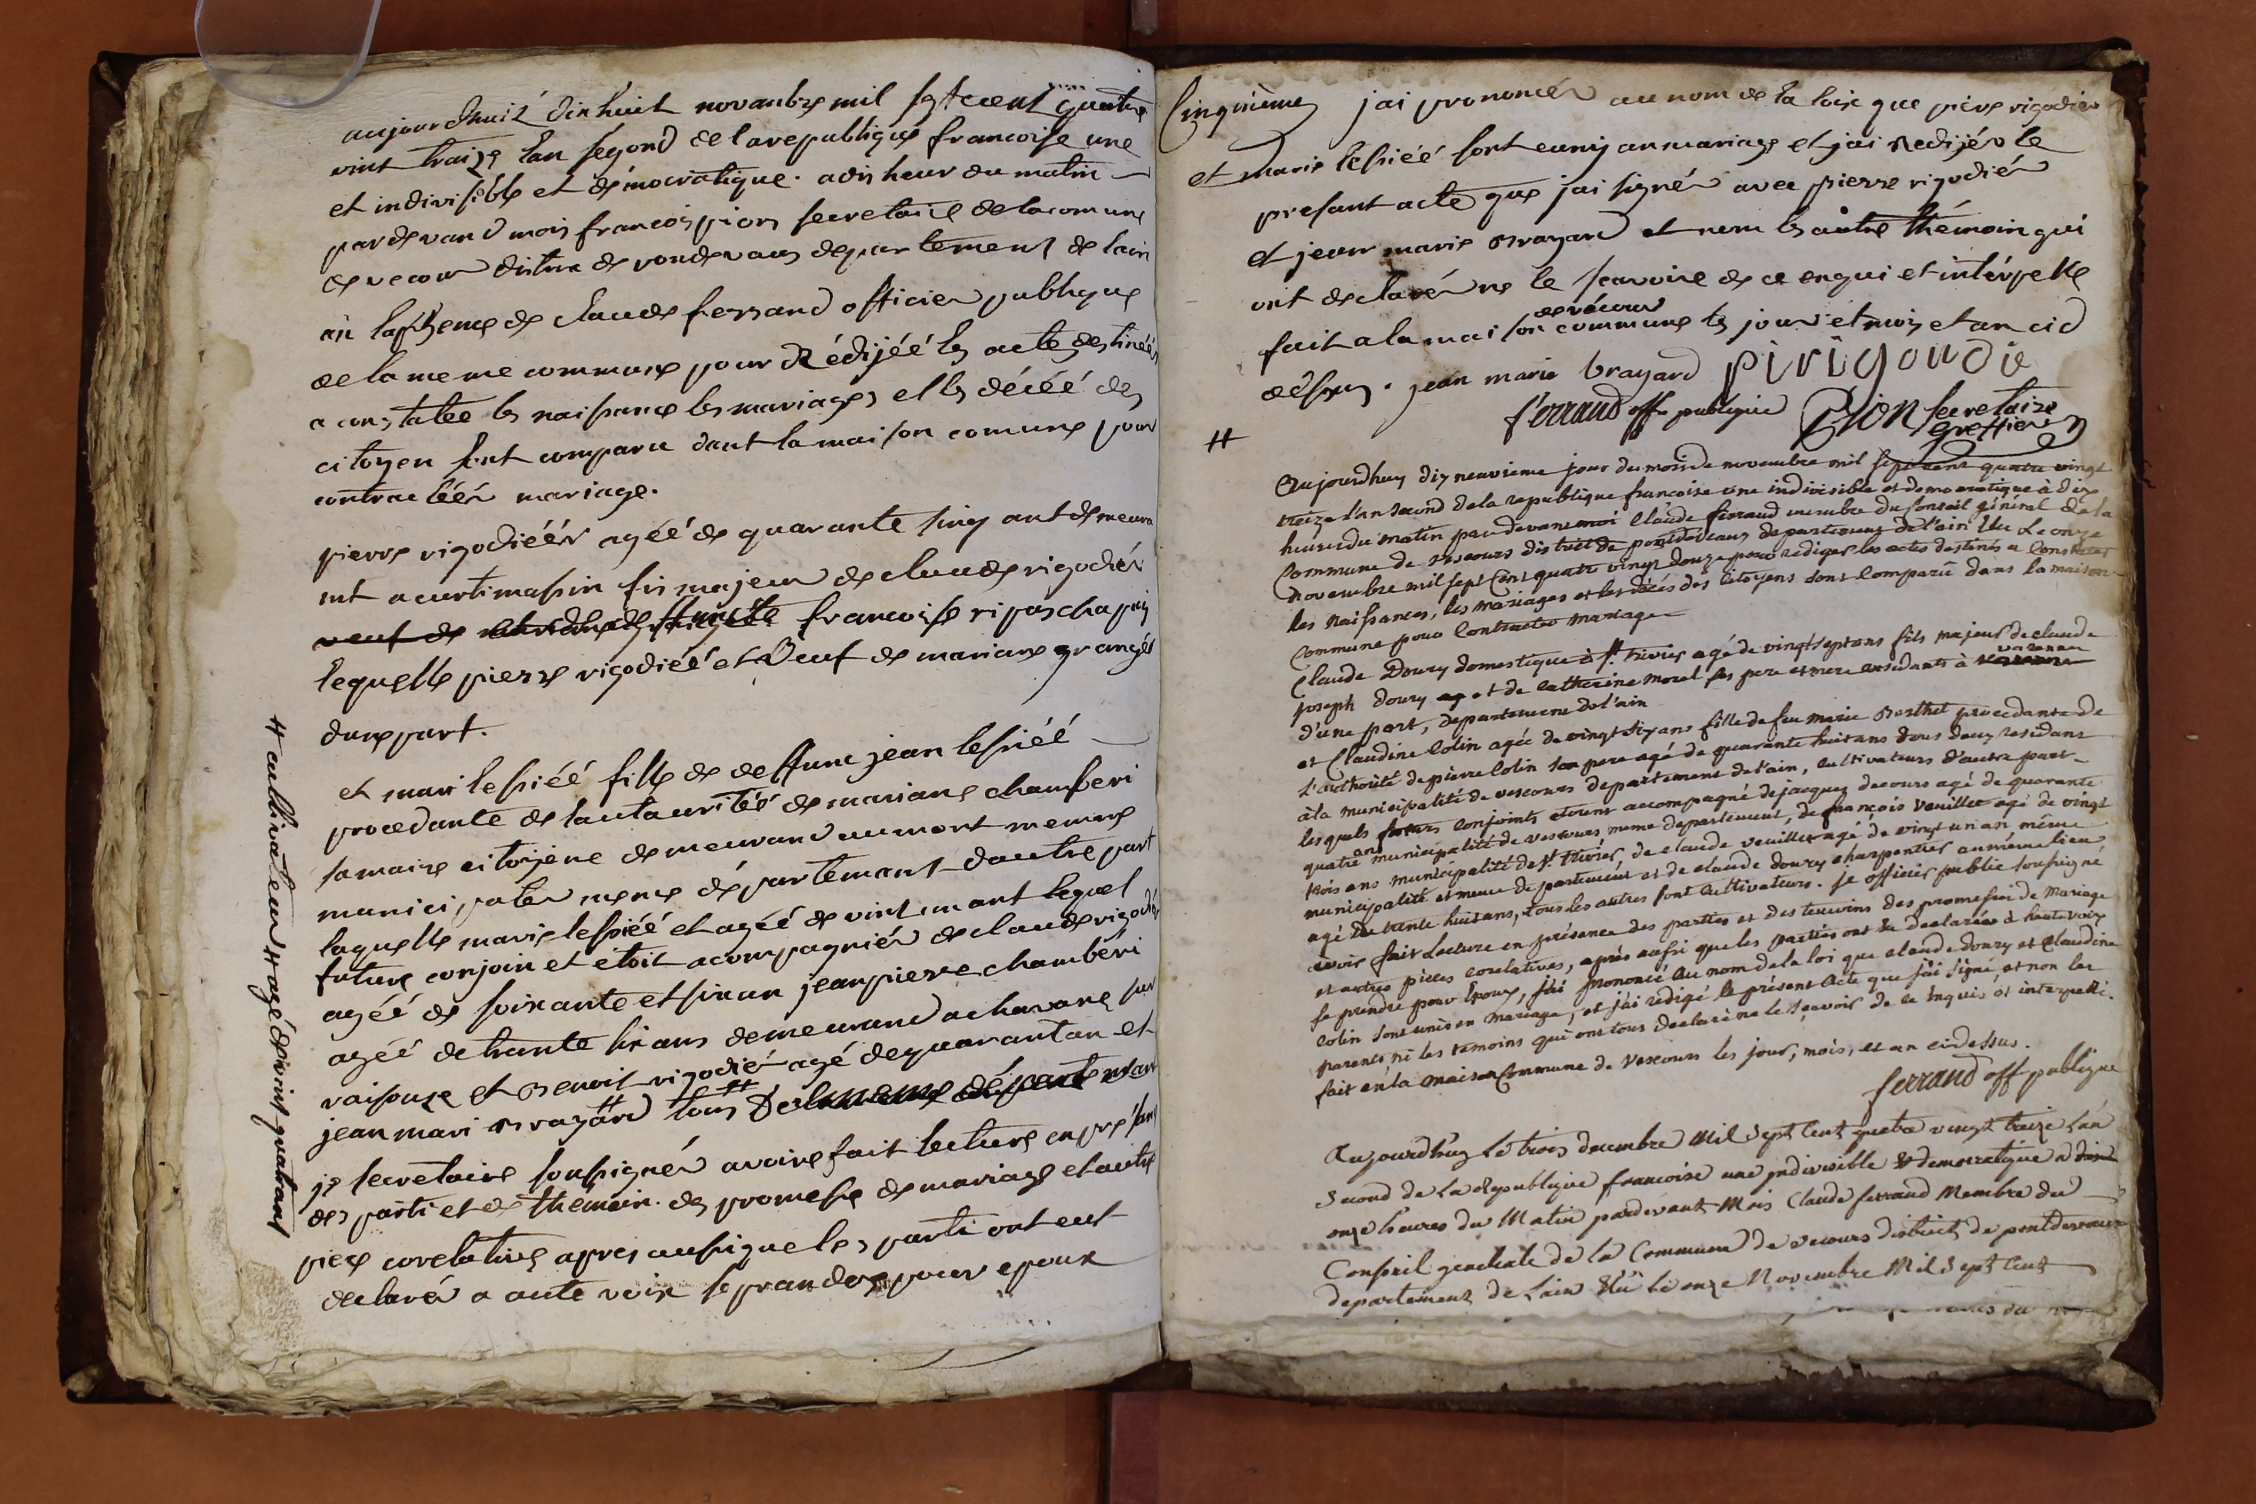 aujourdhuit dix huit novanbre mil septcent quatre
vint traize lan segond de larepublique francoise une
et indivisible et démocratique. a dis heur du matin
pardevand moi francois pion secretaire de lacomune
de vecour distric de pondevaux departement de lain
an lapsence de Claude ferrand officier publique
de la meme commune pour Rédijéé les acte destinéés
a constatée les naisance les mariages et les décéé des
citoyen sont comparu dant la maison comune pour
contractéér mariage.
pierre rigodiéér agéé de quarante sinq ant demeura
nt a curtimasin fis majeur de claude rigodiér
veuf de francoise ripaschapuy
lequelle pierre rigodiéé et Veuf de mariane grangér
dunepart.
et mari lesiéé fille de deffunc jean lesiéé
procedante de lautauritéé de mariane chamberi
samaire citoiene demeurand aumont meme
municipaler meme départemant dautre part
laquelle marie lesiéé et agéé de vint un ant lequel
future conjoin et etoit acompagniér de claude rigodiér
agéé de soixante et six an jeanpierre chambéri
agéé de trante six ans demeurand a chavane sur
raisouze et Benoit rigodié agé dequarantan et
jean mari # Brayard tous # De la meme départemant
je secretaire sousignér avoire fait lecture en présan
des parti et des thémoin. des promese de mariage et autre
piece corelative apres ausique les parti ont eut
déclarér a aute voix seprandre pour epoux
# cultivateur # agé de vint quatrant
Cinquième jai prononcér au nom de la loix que piere rigodier
et marie lesiéé sont euniy an mariage et jai Redijér le
presant acte que jai signér avec pierre rigodiér
et jean marie Brayard et nom les autre thémoin qui
ont déclarér ne le scavoire de ce enqui et intérpellé
fait a la maison commune de vécour les jour et mois et an cid
desus. jean marie brayard pirigoudie
ferrand off publique Pion secretaire
greffier
#
Aujourdhuy dix neuvieme jour du mois de novembre mil sept cent quatre vingt
treize l'an second de la republique francoise une indivisible et democratique à dix
heures du matin pardevant moi Claude ferrand membre du Conseil général de la
Commune de Vescours district de pontdevaux departement de l'ain Elu Le onze
novembre mil sept Cent quatre vingt douze pour rediger les actes destinés a Constater
les Naissances, les Mariages et les décés des Citoyens sont Comparu dans la maison
Commune pour Contracter mariage
Claude Doury domestique à St. trivier agé de vingt sept ans fils majeur de claude
joseph doury et de catherine morel ses pere et mere residants à varenne
d'une part, departement de l'ain
et Claudine Colin agée de vingt six ans fille de feu marie Berthet procedante de
l'authorité de pierre Colin son pere agé de quarante huit ans tous deux residant
à la municipalité de vescours departement de l'ain, cultivateurs d'autre part
lesquels futurs Conjoints etoient accompagné de jacques decours agé de quarante
quatre an municipalité de vescours meme departement, de françois Veuillet agé de vingt
trois ans municipalité de St. trivier, de claude veuillet agé de vingt un an même
municipalité et meme departement et de claude doury charpentier au meme lieu
agé de trente huit ans, tous les autres sont cultivateurs. je officier public soussigné
avoir fait Lecture en présence des parties et des temoins des promesses de Mariage
et autres pieces corelatives, après aussi que les parties ont eu declarées à haute voix
se prendre pour Epoux, j'ai prononcé Au nom de la loi que claude doury et Claudine
Colin sont unis en Mariage, et j'ai rédigé le présent Acte que j'ai signé, et non les
parents ni les temoins qui ont tous declaré ne le sçavoir de ce Enquis et interpellé.
fait en la maison Commune de Vescours les jour, mois, et an cidessus.
ferrand off publique
Aujourd'huy le trois decembre Mil Sept Cent quatre vingt treize l'an
Second de La Republique francoise une jndivisible & democratique a
onze heures du Matin pardevant Mois Claude ferrand Membre du
Conseil generale de la Commune de vecours district de pontdevaux
departement de Lain Elu le onze Novembre Mil Sept Cent